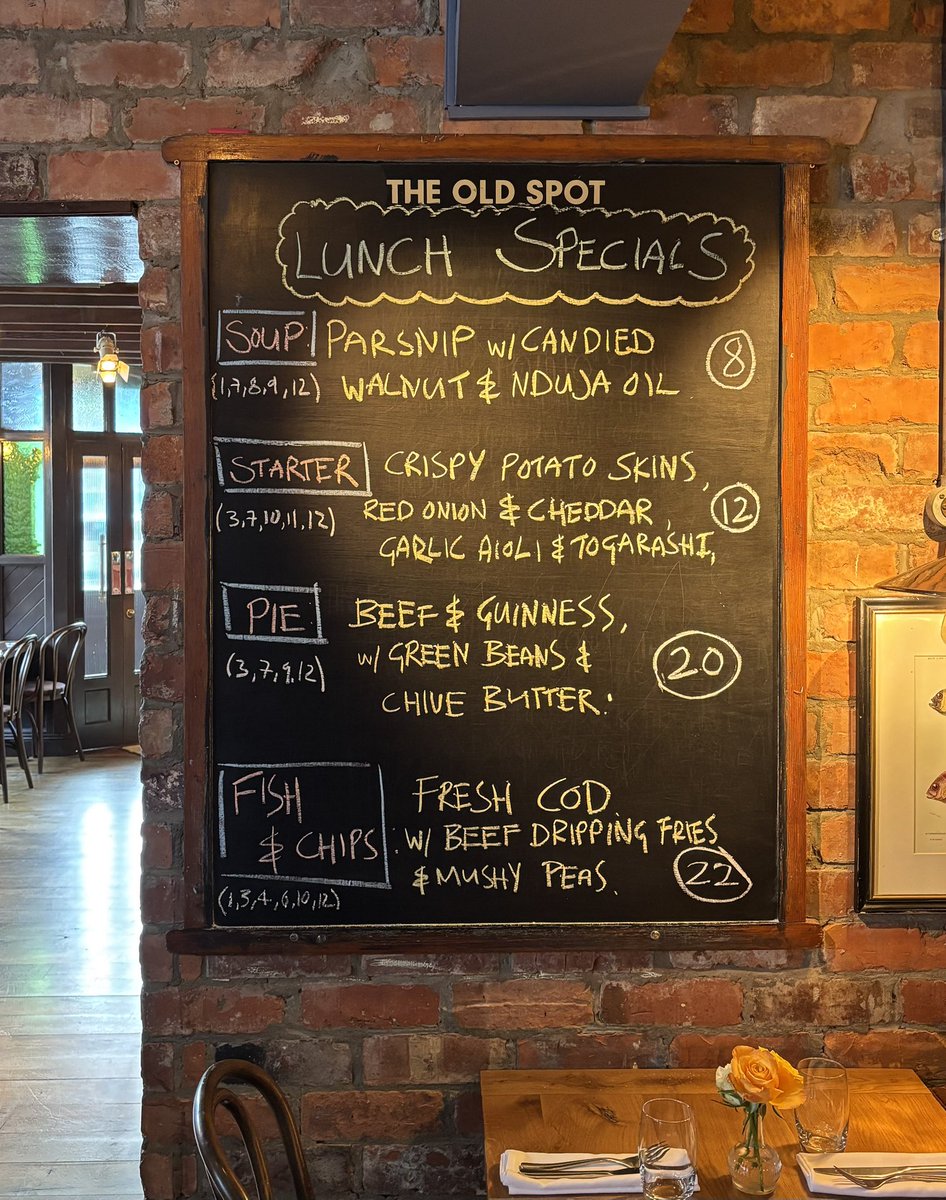 THE OLD SPOT
LUNCH SPECIALS
SOUP PARSNIP w/ CANDIED
(1,7,8,9,12) WALNUT & NDUJA OIL 8
STARTER CRISPY POTATO SKINS,
(3,7,10,11,12) RED ONION & CHEDDAR, 12
GARLIC AIOLI & TOGARASHI,
PIE BEEF & GUINNESS,
(3,7,9,12) w/ GREEN BEANS & 20
CHIVE BUTTER.
FISH FRESH COD
& CHIPS W/ BEEF DRIPPING FRIES
& MUSHY PEAS. 22
(1,3,4,6,10,12)